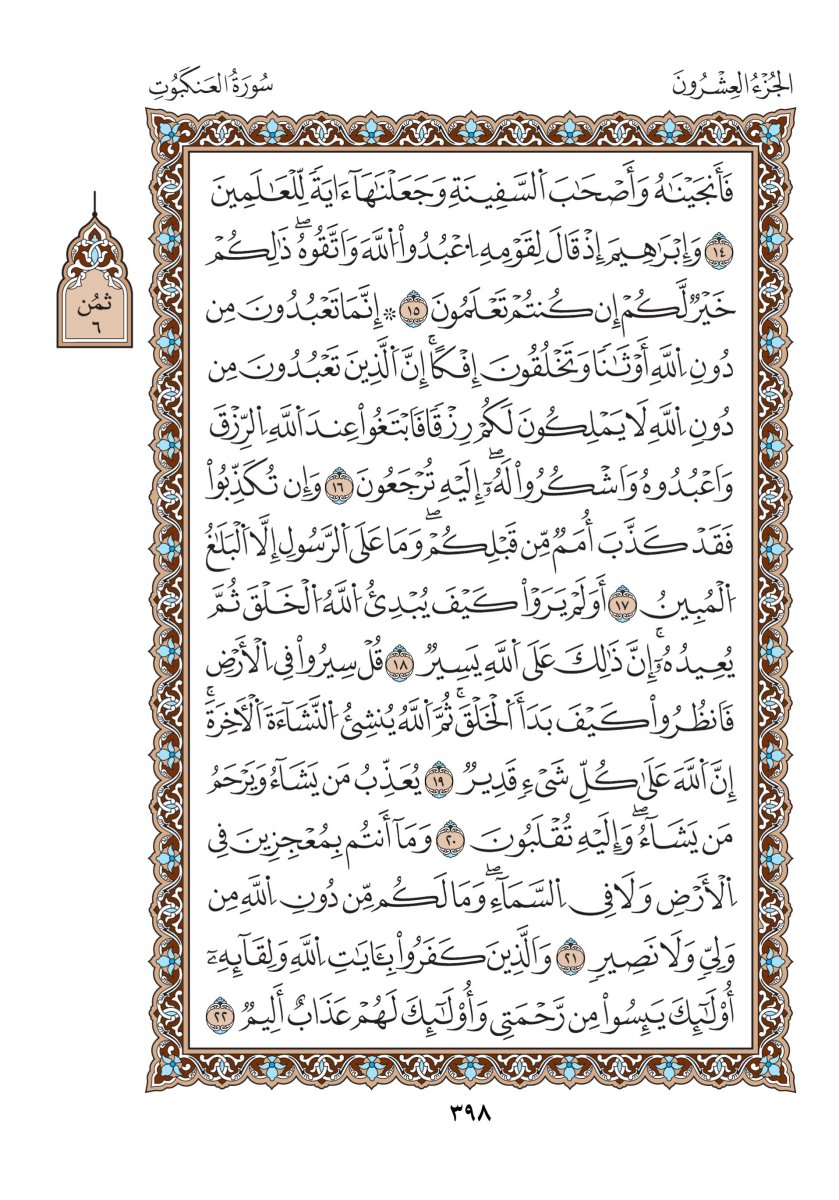 الجُزْءُ العِشْرُونَ
سُورَةُ العَنكَبُوتِ
فَأَنجَيْنَٰهُ وَأَصْحَٰبَ اَ۬لسَّفِينَةِ وَجَعَلْنَٰهَآ ءَايَةٗ لِّلْعَٰلَمِينَ
١٤ وَإِبْرَٰهِيمَ إِذْ قَالَ لِقَوْمِهِ اِ۟عْبُدُواْ اُ۬للَّهَ وَاتَّقُوهُۖ ذَٰلِكُمْ
خَيْرٞ لَّكُمْ إِن كُنتُمْ تَعْلَمُونَ ١٥ ۞ إِنَّمَا تَعْبُدُونَ مِن
دُونِ اِ۬للَّهِ أَوْثَٰنٗا وَتَخْلُقُونَ إِفْكًاۚ إِنَّ اَ۬لَّذِينَ تَعْبُدُونَ مِن
دُونِ اِ۬للَّهِ لَا يَمْلِكُونَ لَكُمْ رِزْقٗا فَابْتَغُواْ عِندَ اَ۬للَّهِ اِ۬لرِّزْقَ
وَاعْبُدُوهُ وَاشْكُرُواْ لَهُۥٓۖ إِلَيْهِ تُرْجَعُونَ ١٦ وَإِن تُكَذِّبُواْ
فَقَدْ كَذَّبَ أُمَمٞ مِّن قَبْلِكُمْۖ وَمَا عَلَى اَ۬لرَّسُولِ إِلَّا اَ۬لْبَلَٰغُ
اُ۬لْمُبِينُ ١٧ أَوَلَمْ يَرَوْاْ كَيْفَ يُبْدِئُ اُ۬للَّهُ اُ۬لْخَلْقَ ثُمَّ
يُعِيدُهُۥٓۚ إِنَّ ذَٰلِكَ عَلَى اَ۬للَّهِ يَسِيرٞ ١٨ قُلْ سِيرُواْ فِي اِ۬لْأَرْضِ
فَانظُرُواْ كَيْفَ بَدَأَ اَ۬لْخَلْقَۚ ثُمَّ اَ۬للَّهُ يُنشِئُ اُ۬لنَّشَآءَةَ اَ۬لْأٓخِرَةَۚ
إِنَّ اَ۬للَّهَ عَلَىٰ كُلِّ شَيْءٖ قَدِيرٞ ١٩ يُعَذِّبُ مَن يَشَآءُ وَيَرْحَمُ
مَن يَشَآءُۖ وَإِلَيْهِ تُقْلَبُونَ ٢٠ وَمَآ أَنتُم بِمُعْجِزِينَ فِي
اِ۬لْأَرْضِ وَلَا فِي اِ۬لسَّمَآءِۖ وَمَا لَكُم مِّن دُونِ اِ۬للَّهِ مِن
وَلِيّٖ وَلَا نَصِيرٖ ٢١ وَالَّذِينَ كَفَرُواْ بِـَٔايَٰتِ اِ۬للَّهِ وَلِقَآئِهِۦٓ
أُوْلَٰٓئِكَ يَئِسُواْ مِن رَّحْمَتِي وَأُوْلَٰٓئِكَ لَهُمْ عَذَابٌ أَلِيمٞ ٢٢
ثُمُن
٦
٣٩٨